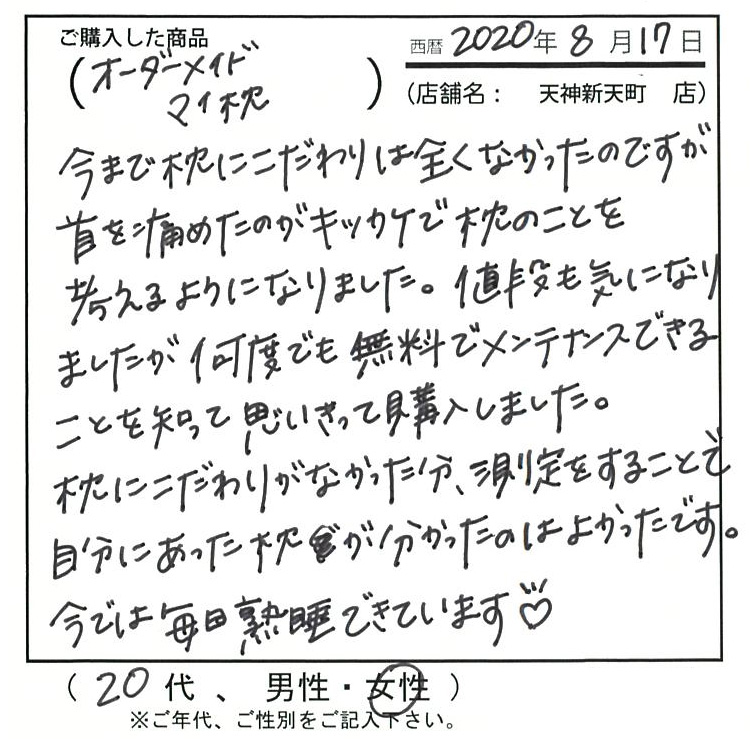 ご購入した商品
西暦 2020年 8月17日
(オーダーメイド
マイ枕)
(店舗名： 天神新天町 店)
今まで枕にこだわりは全くなかったのですが
首を痛めたのがキッカケで枕のことを
考えるようになりました。値段も気になり
ましたが何度でも無料でメンテナンスできる
ことを知って思いきって購入しました。
枕にこだわりがなかった分、測定をすることで
自分にあった枕が分かったのはよかったです。
今では毎日熟睡できています♡
(20代、男性・女性)
※ご年代、ご性別をご記入下さい。